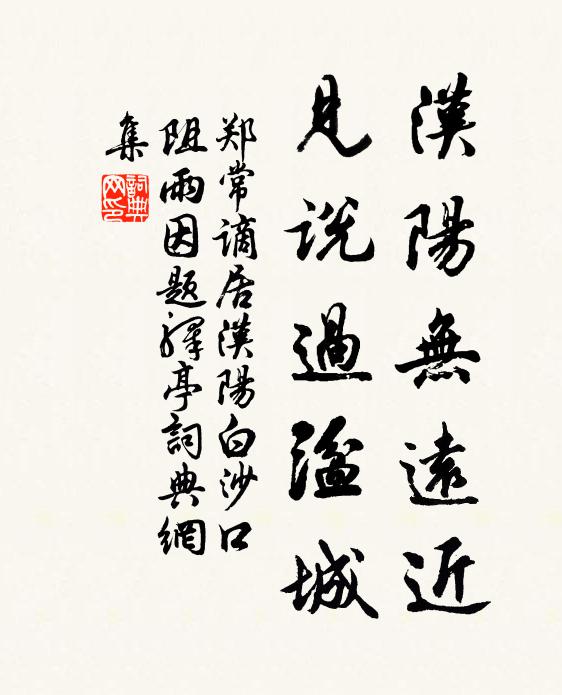 漢陽無遠近
見説過湓城
郑常谪居漢陽白沙口
阻雨因题驛亭詞典網
集
詞典
网印